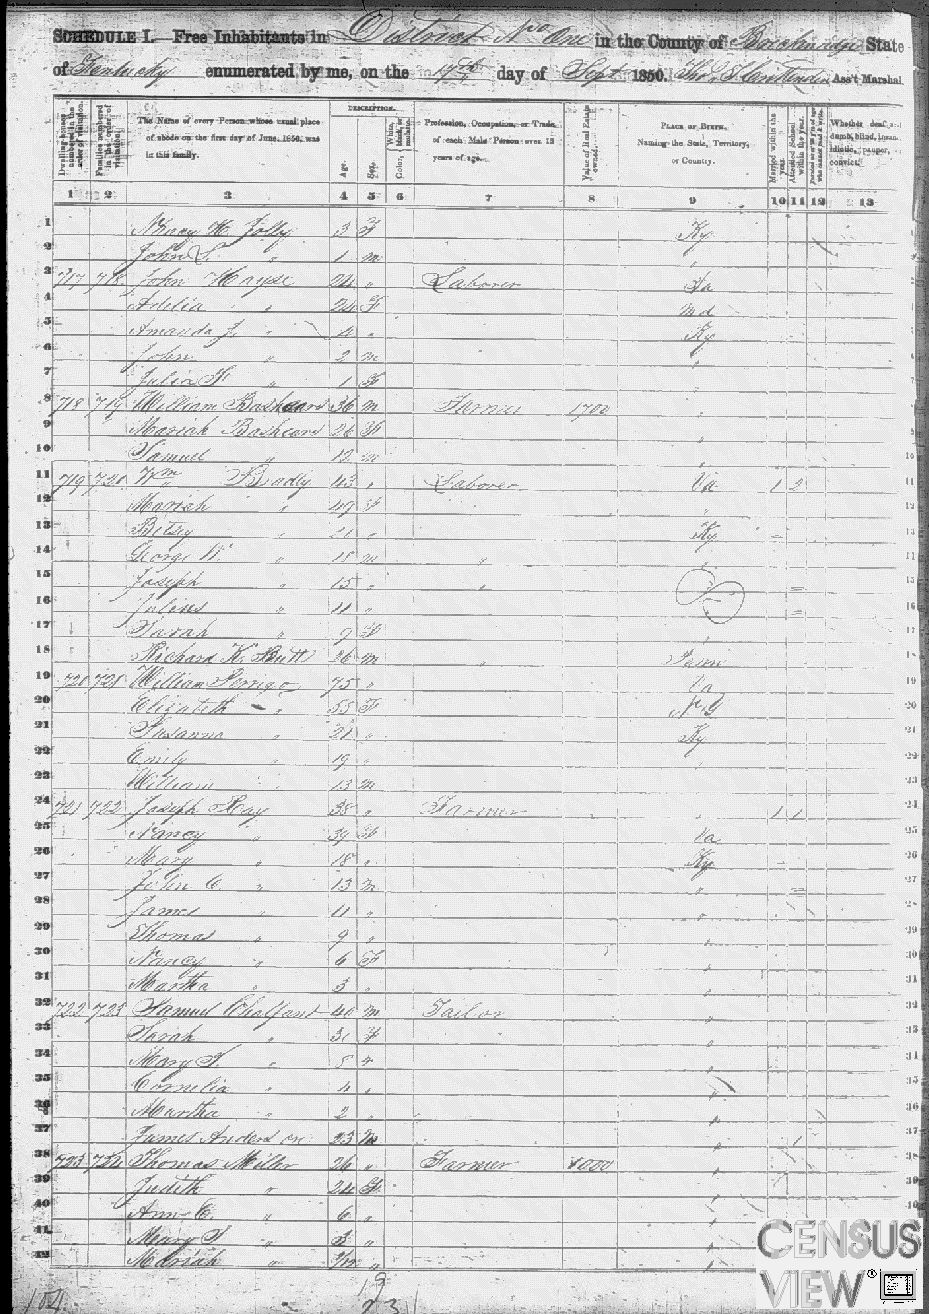 SCHEDULE I. Free Inhabitants in District No One in the County of Breckinridge State
of Kentucky enumerated by me, on the 17th day of Sept 1850. Ass't Marshal
Dwelling-houses numbered in the order of visitation.
Families numbered in the order of visitation.
The Name of every Person whose usual place of abode on the first day of June, 1850, was in this family.
DESCRIPTION.
Age.
Sex.
Color, White, black, or mulatto.
Profession, Occupation, or Trade of each Male Person over 15 years of age.
Value of Real Estate owned.
PLACE OF BIRTH, Naming the State, Territory, or Country.
Married within the year.
Attended School within the year.
Whether deaf and dumb, blind, insane, idiotic, pauper, or convict.
1 2 3 4 5 6 7 8 9 10 11 12 13
1 H. Jolly 3 F Ky
2 John S. " 1 m "
3 717 718 John Hayse 24 " Laborer
4 Adelia " 24 F Md
5 Amanda J. " 4 " Ky
6 John " 2 m "
7 Julia F " 1 F
8 718 719 William Bashears 36 m Farmer 1700 "
9 Mariah Bashears 26 F "
10 Samuel " 12 m "
11 719 720 Wm Bradly 43 " Laborer Va 1 2
12 Mariah " 49 F "
13 Betsy " 21 " Ky
14 George W " 18 m " "
15 Joseph " 15 " "
16 Julius " 11 "
17 Sarah " 9 F "
18 Richard K. Butt 26 m "
19 720 721 William 75 " Va
20 Elizabeth " 55 F
21 Susanna " 21 " Ky
22 Emily " 19 " "
23 William " 13 m
24 721 722 Joseph Hay 38 " Farmer " 1 1
25 Nancy " 39 F Va
26 Mary " 18 " Ky
27 John C. " 13 m "
28 James " 11 " "
29 Thomas " 9 " "
30 Nancy " 6 F "
31 Martha " 3 " "
32 722 723 Samuel Chalfant 40 m Tailor "
33 Sarah " F "
34 Mary " 5 "
35 Cornelia " 4 " "
36 Martha " 2 " "
37 James Anderson 23 m " 1
38 723 724 Thomas Miller 26 " Farmer 1000 "
39 Judith " 24 F "
40 Ann E. " 6 " "
41 Mary " 3 " "
42 Mariah " "
CENSUS
VIEW®